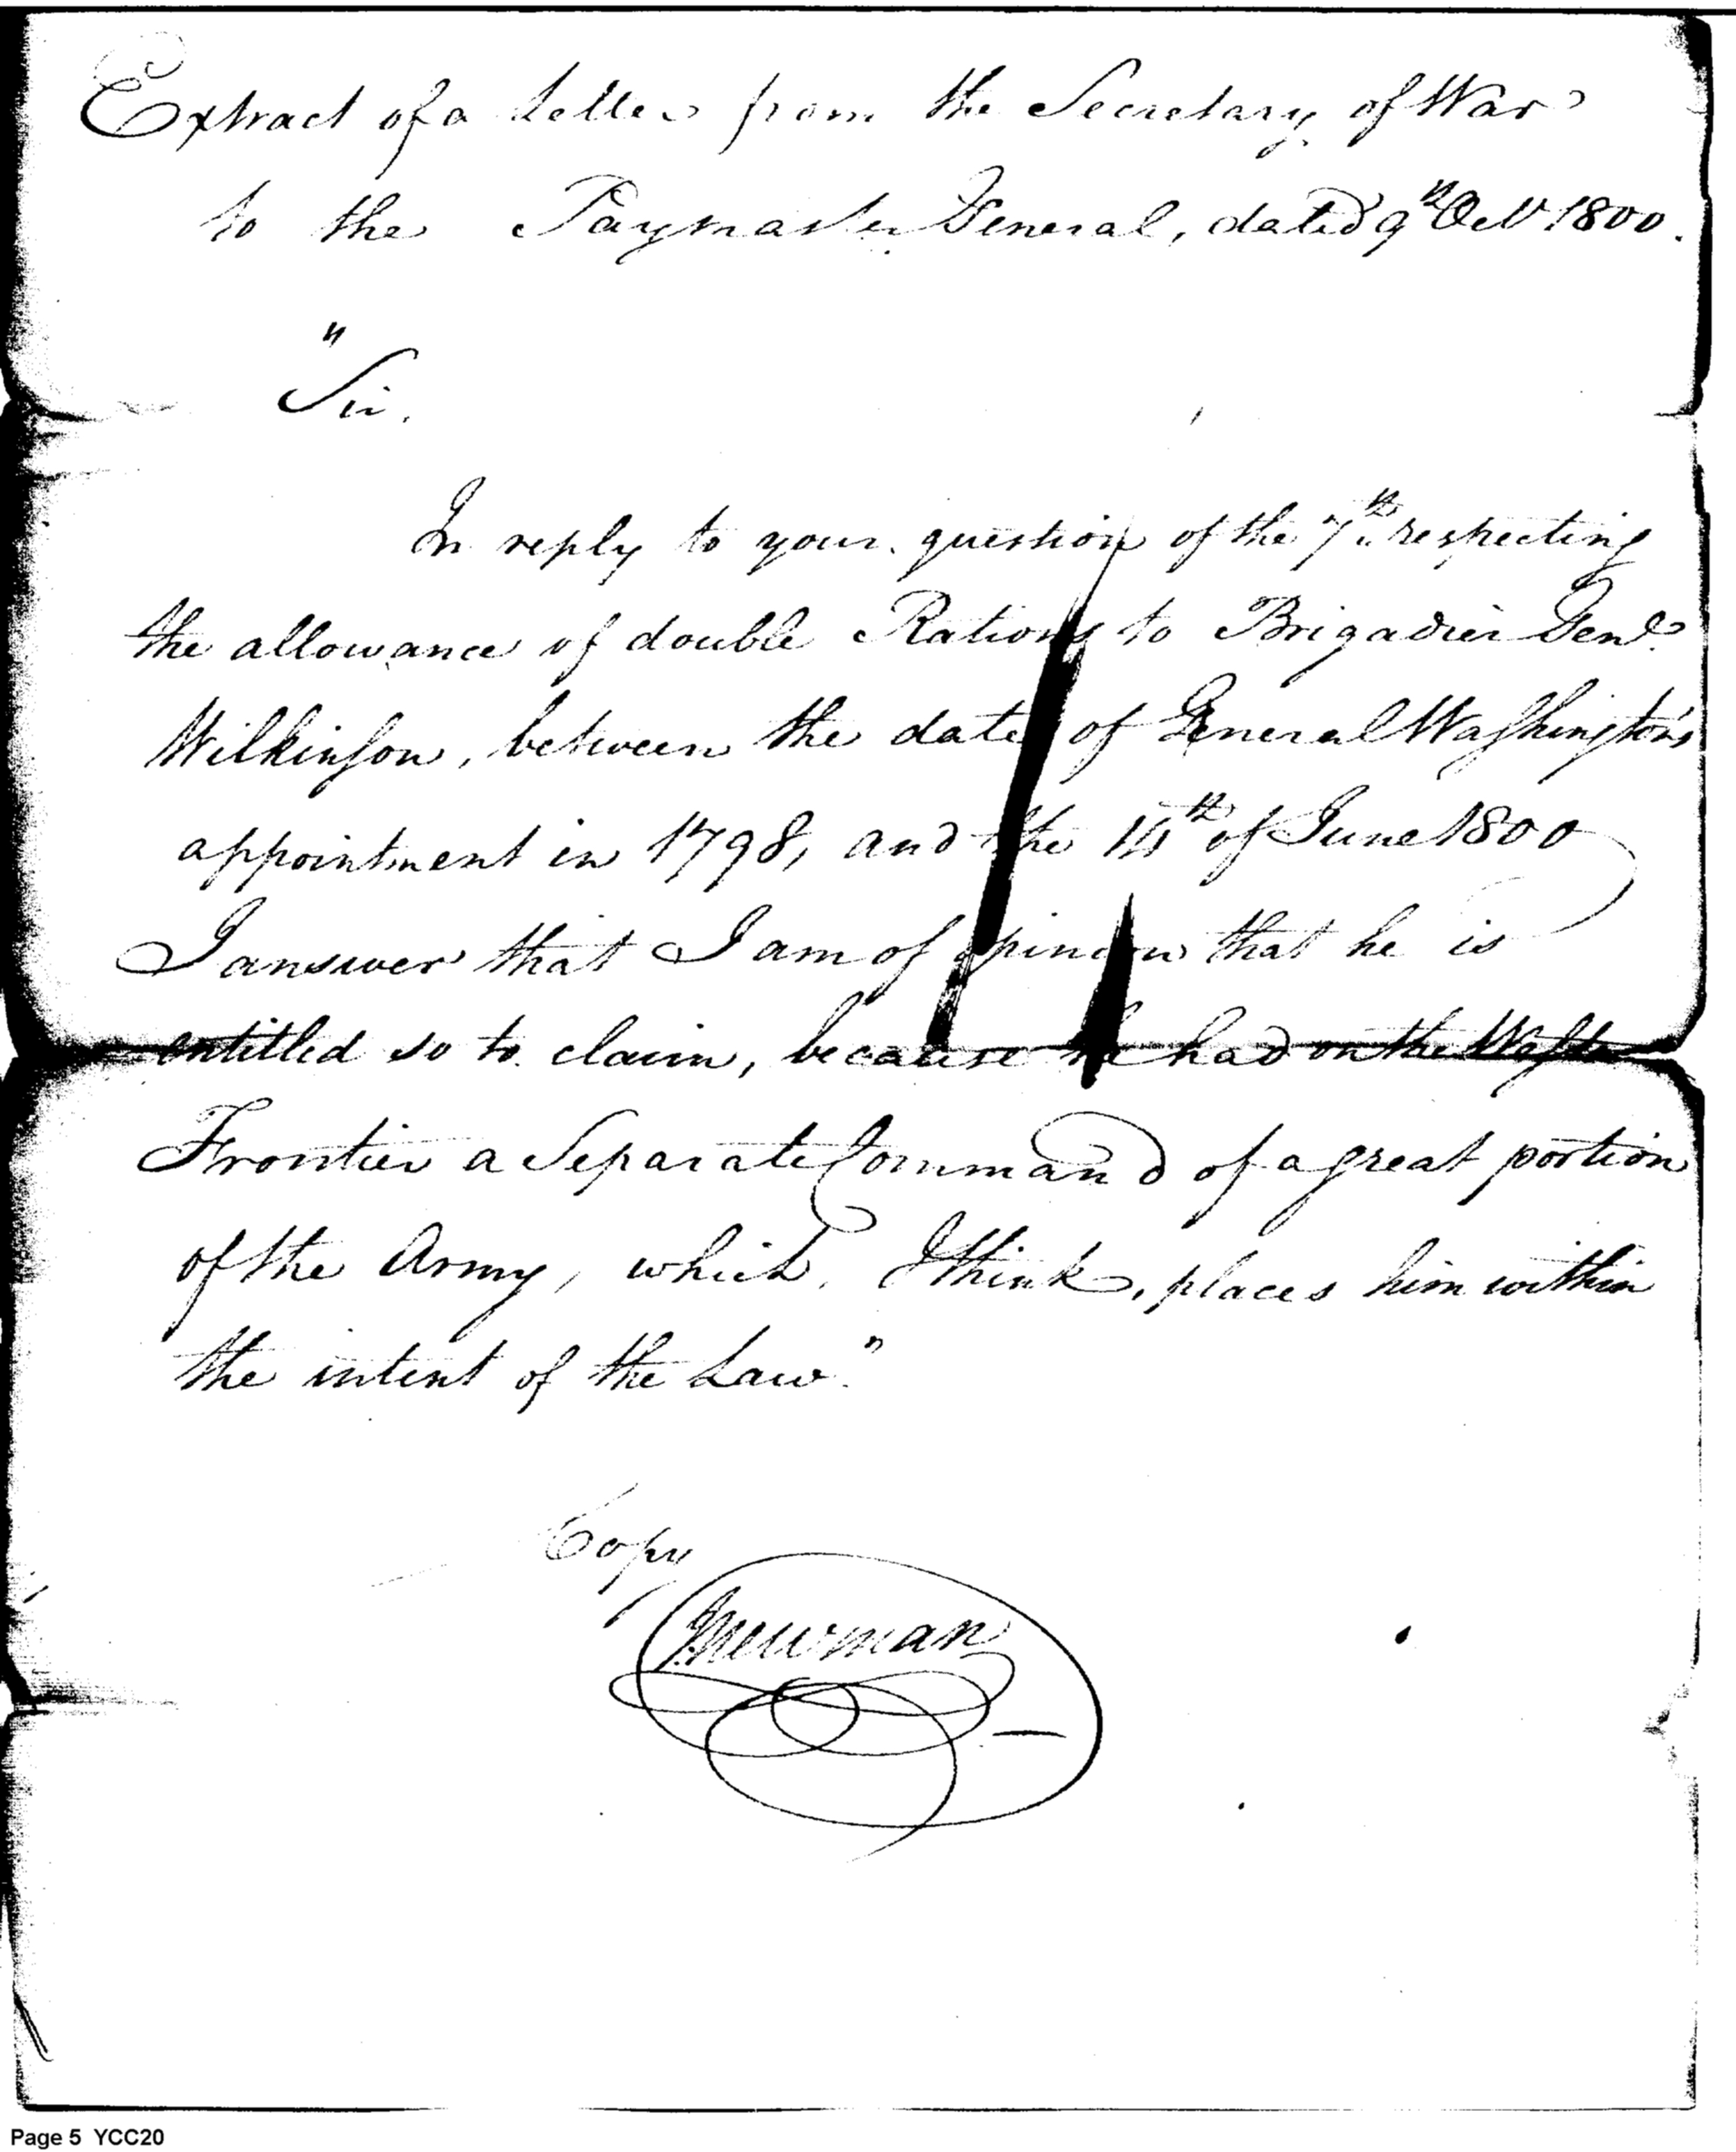 Extract of a Letter from the Secretary of War
to the Paymaster General, dated 9th Octr 1800.
"Sir.
In reply to your question of the 7th respecting
the allowance of double Rations to Brigadier Genl
Wilkinson, between the date of General Washington's
appointment in 1798, and the 14th of June 1800
I answer that I am of opinion that he is
entitled so to claim, because he had on the
Frontier a Separate Command of a great portion
of the Army, which, I think, places him within
the intent of the Law."
Copy
J Newman
Page 5 YCC20